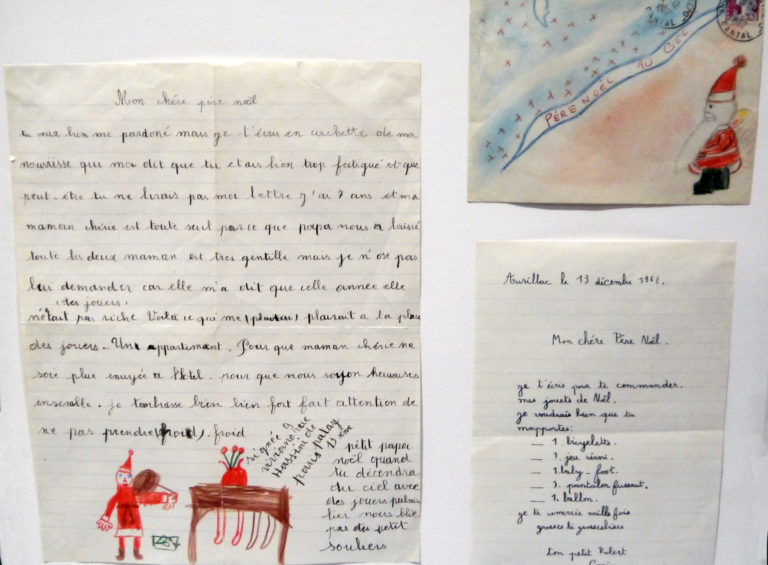 Mon chére père nöel
tu veux bien me pardoné mais je t'écris en cachette de ma
nourrisse qui ma dit que tu étais bien trop fatigué et que
peut-être tu ne lirais pas ma lettre j'ai 7 ans et ma
maman chérie est toute seul parce que papa nous a laissé
toute les deux maman est tres gentille mais je n'ose pas
lui demander car elle m'a dit que celle année elle
(des jouers)
n'était pas riche Voila ce qui me plairait a la place
des jouers. Un appartement. Pour que maman chérie ne
soie plue a l'hotel. pour que nous soyon heureuses
ensemble. je t'embrasse bien bien fort fait attention de
ne pas prendre froid
signée
paris
pétit papa
noël quand
tu décendra
du ciel avec
des jouers
nous
pas des petit
souliers
CANTAL
CANTAL
PÉRE NOËL AU CIEL
Aurillac le 13 décembre 1962.
Mon chére Pére Noël.
je t'écris pour te commander.
mes jouets de Nöel.
je voudrais bien que tu
m'apportes:
— 1. bicyclette.
— 1. jeu réuni.
— 1. baby-foot.
— 1. pantalon fuseaut.
— 1. ballon.
je te remercie mills fois
grosses
ton petit Robert